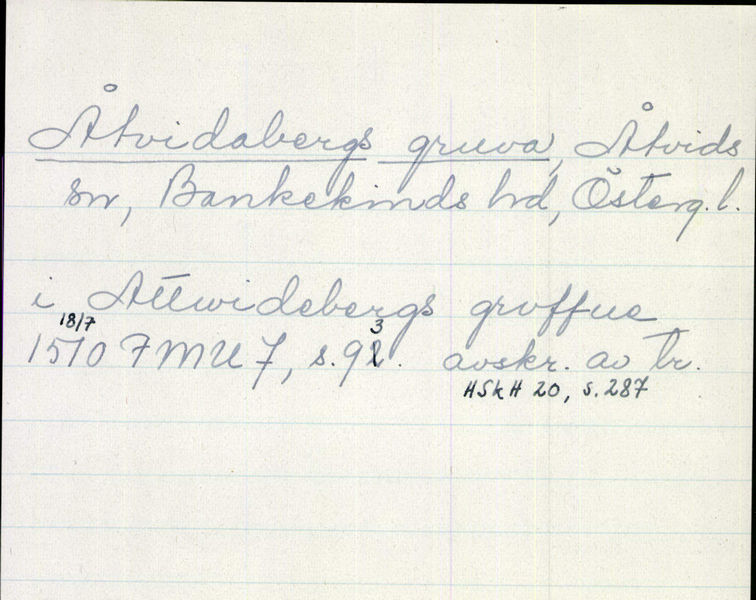 Åtvidabergs gruva, Åtvids
sn, Bankekinds hd, Österg. l.
i Attwidebergs groffue
18/7
1510 FMU 7, s. 93. avskr. av tr.
HSkH 20, s. 287